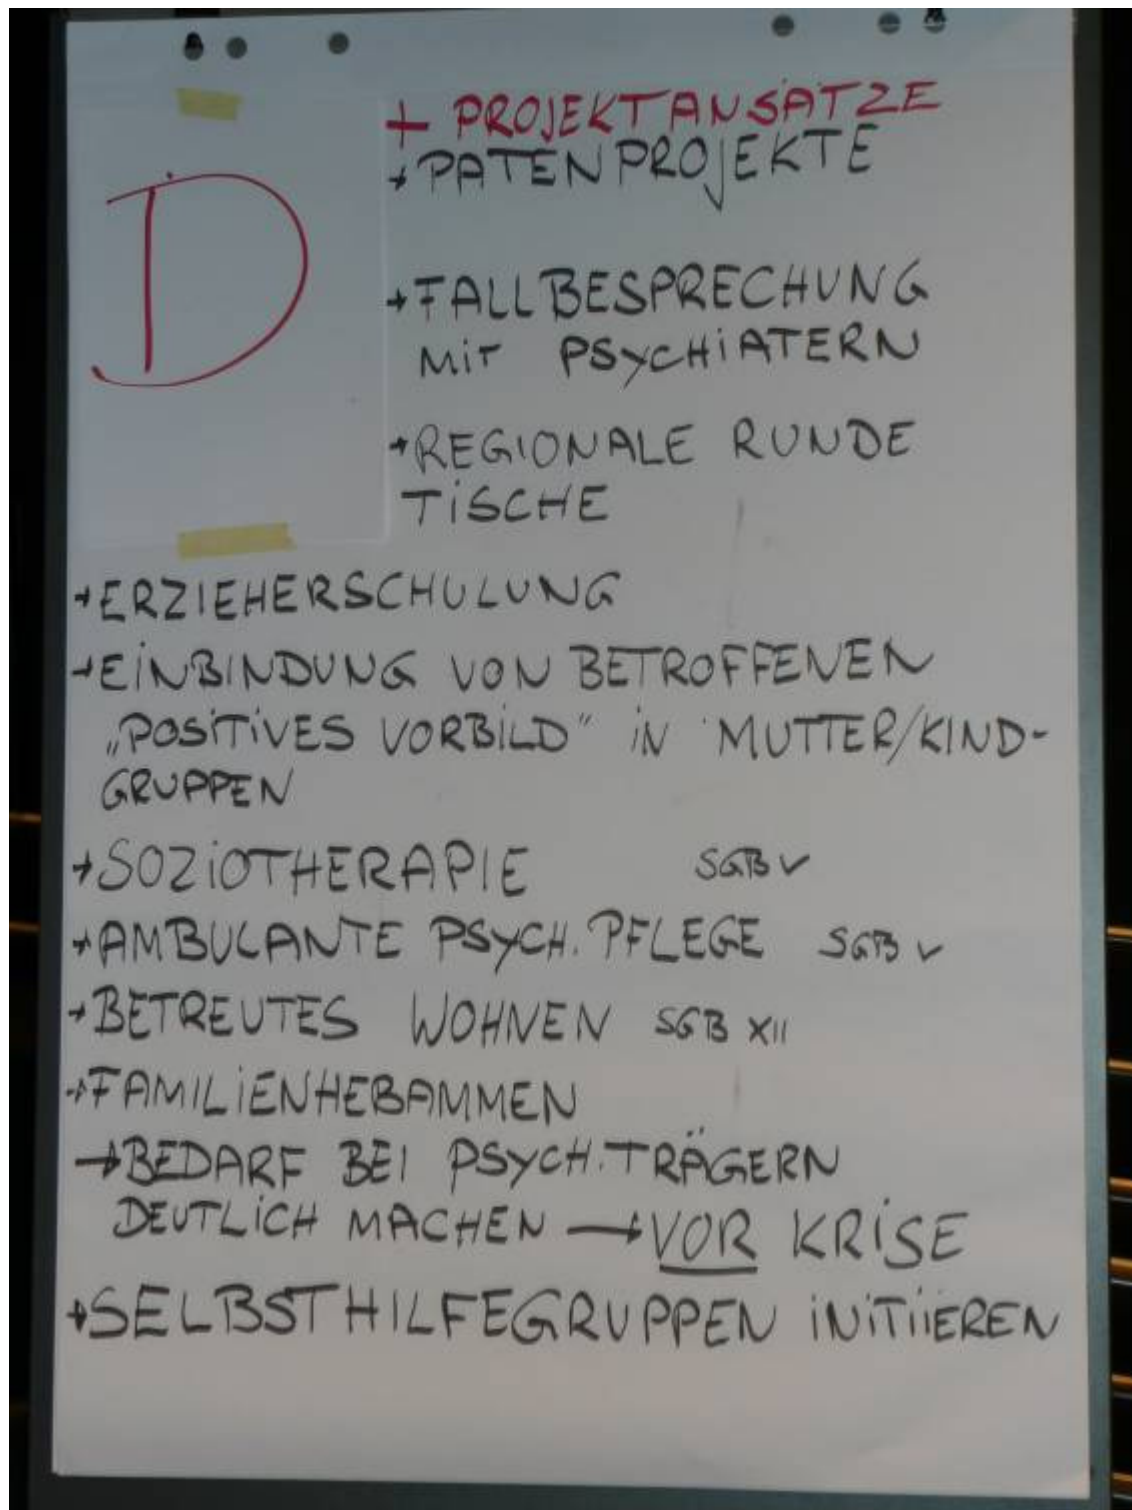 D
+ PROJEKTANSÄTZE
→ PATENPROJEKTE
→ FALLBESPRECHUNG
MIT PSYCHIATERN
→ REGIONALE RUNDE
TISCHE
→ ERZIEHERSCHULUNG
→ EINBINDUNG VON BETROFFENEN
„POSITIVES VORBILD" IN MUTTER/KIND-
GRUPPEN
→ SOZIOTHERAPIE SGB V
→ AMBULANTE PSYCH. PFLEGE SGB V
→ BETREUTES WOHNEN SGB XII
→ FAMILIENHEBAMMEN
→ BEDARF BEI PSYCH. TRÄGERN
DEUTLICH MACHEN → VOR KRISE
→ SELBSTHILFEGRUPPEN INITIIEREN